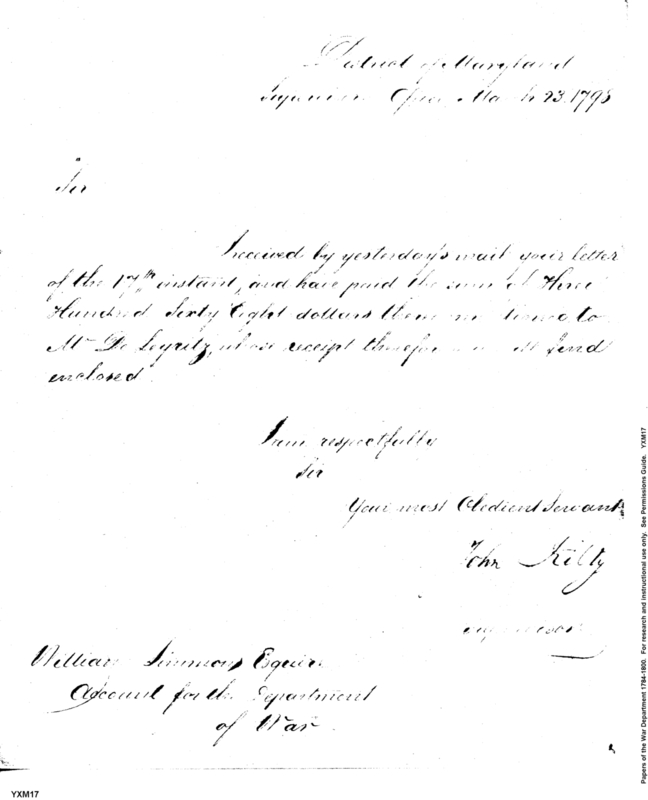 District of Maryland
Supervisors Office March 23. 1798
Sir
I received by yesterday's mail your letter
of the 17th instant, and have paid the sum of Three
Hundred Sixty Eight dollars to
Mr De Leyritz, whose receipt therefor send
enclosed
I am respectfully
Sir
Your most Obedient Servant
John Kilty
Supervisor
William Simmons Esquire
Account for the Department
of War
YXM17
Papers of the War Department 1784-1800. For research and instructional use only. See Permissions Guide. YXM17